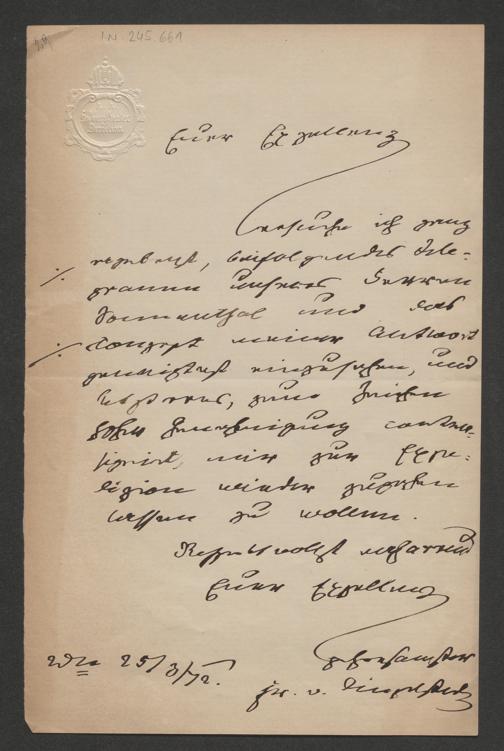 I.N. 245.661
Euer Exzellenz
ersuche ich ganz
ergebenst, beifolgendes Tele-
gramm unseres Herren
Sonnenthal und das
Conzept meiner Antwort
geneigtest einzusehen, und
letzteres, zum Zeichen
hoher Genehmigung contra-
signirt, mir zur Expe-
dizion wieder zugehen
lassen zu wollen.
Respektvollst verharrend
Euer Exzellenz
gehorsamster
Fr. v. Dingelstedt
Wien 25/3/72.